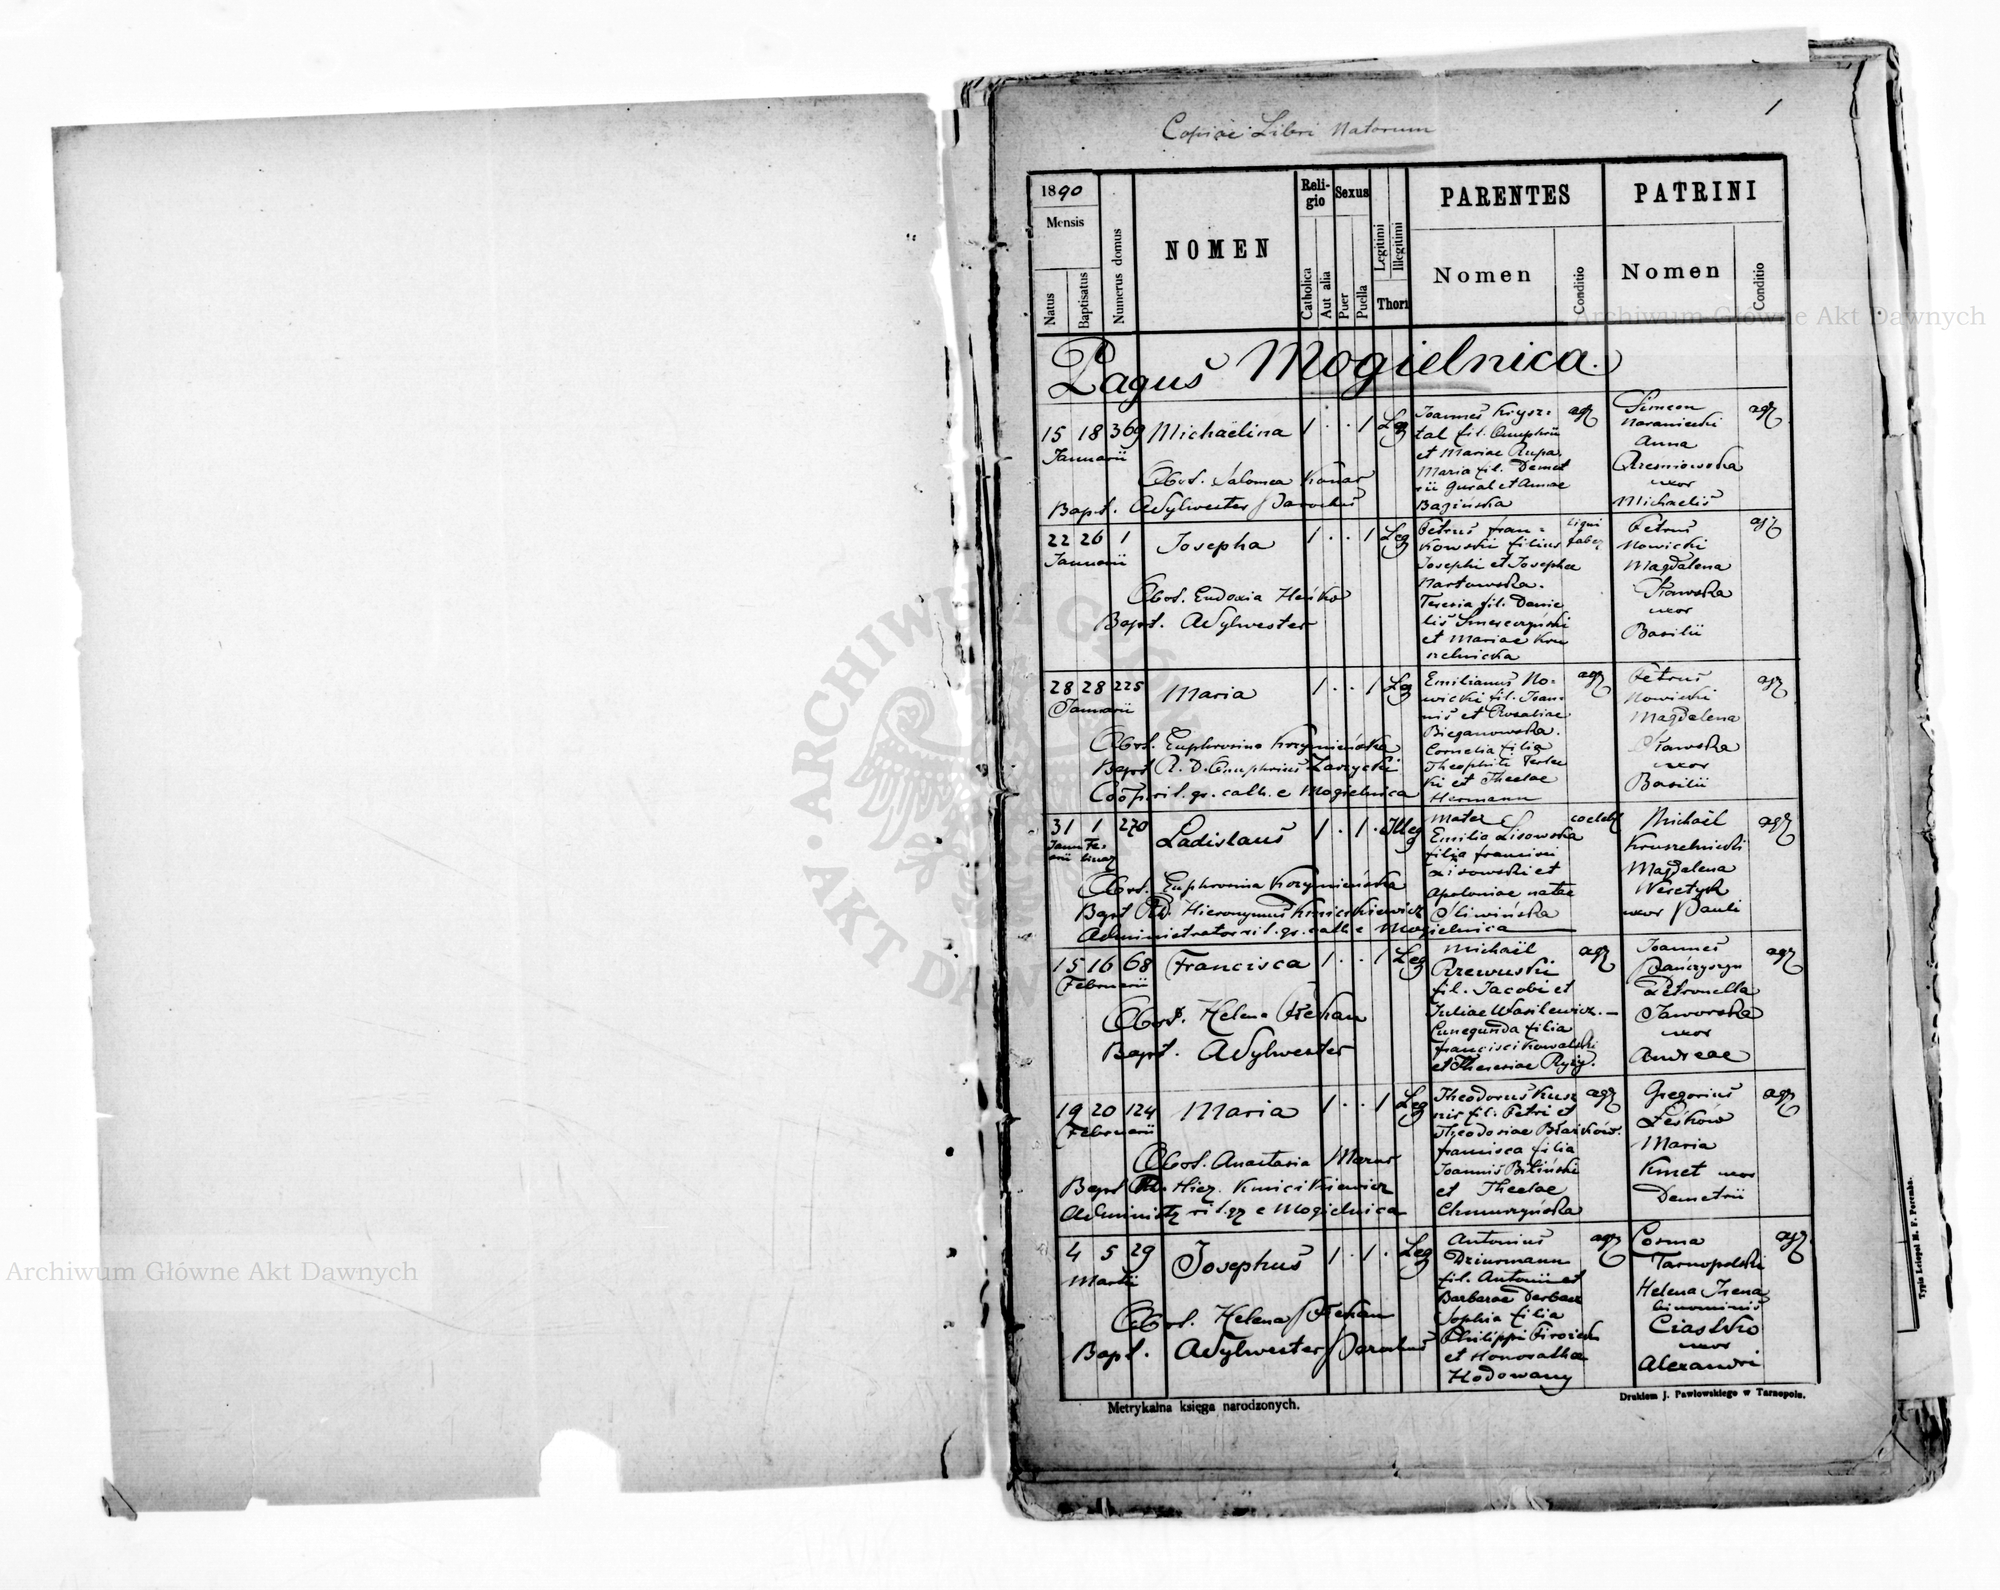 Copiae Libri Natorum
1
1890
Mensis
Natus
Baptisatus
Numerus domus
NOMEN
Reli-
gio
Catholica
Aut alia
Sexus
Puer
Puella
Legitimi
Illegitimi
Thori
PARENTES
Nomen
Conditio
PATRINI
Nomen
Conditio
Pagus Mogielnica.
15 18 369 Michaëlina 1 . . 1 Leg
Januarii
Obst. Salomea Konar
Bapt. Sylwester Parochus
Joannes Krysz-
tal fil. Onuphrii
et Mariae Rupa
Maria fil. Demet
rii Gural et Annae
Bagińska
agr
Simeon
Naraniecki
Anna
Rzesniowska
uxor
Michaelis
agr
22 26 1 Josepha 1 . . 1 Leg
Januarii
Obst. Eudoxia Heńko
Bapt. Sylwester
Petrus Fran-
kowski filius
Josephi et Josepha
Nartowska.
Teresia fil. Danie
lis Smereczyński
et Mariae Kru
szelnicka
ligni
faber
Petrus
Nowicki
Magdalena
uxor
Basilii
agr
28 28 225 Maria 1 . . 1 Leg
Januarii
Obst. Euphrosina Kozymieńska
Bapt R. D. Onuphrius Zarzycki
Coop. rit. gr. cath. e Mogielnica
Emilianus No-
wicki fil. Joan-
nis et Rosaliae
Bieganowska.
Cornelia filia
Theophili Terlec
ki et Theclae
Hermann
agr
Petrus
Nowicki
Magdalena
uxor
Basilii
agr
31 1 270 Ladislaus 1 . 1 . Illeg
Janu Fe-
arii bruar
Obst. Euphrosina Kozymieńska
Bapt RD. Hieronymus Kmicikiewicz
Administrator rit. gr. cath. e Mogielnica
Mater
Emilia Lisowska
filia Francisci
Lisowski et
Apoloniae natae
Śliwińska
coelebs
Michaël
Kruszelnicki
Magdalena
Wesetych
uxor Pauli
agr
15 16 68 Francisca 1 . . 1 Leg
Februarii
Obst. Helena Stekan
Bapt. Sylwester
Michaël
Rzewuski
fil. Jacobi et
Juliae Wasilewicz.
Cunegunda filia
Francisci Kowalski
et Theresiae Ryży.
agr
Joannes
Pańczyszyn
Petronella
Jaworska
uxor
Andreae
agr
19 20 124 Maria 1 . . 1 Leg
Februarii
Obst. Anastasia Mazur
Bapt RD. Hier. Kmicikiewicz
Administr rit. gr e Mogielnica
Theodorus Kusz
nir fil. Petri et
Theodosiae Błażków.
Francisca filia
Joannis Biliński
et Theclae
Chmurzyńska
agr
Gregorius
Leśków
Maria
Kmet uxor
Demetrii
agr
4 5 29 Josephus 1 . 1 . Leg
Martii
Obst. Helena Stekan
Bapt. Sylwester Parochus
Antonius
Dziurmann
fil. Antonii et
Barbarae Derbacz
Sophia filia
Philippi Pirożek
et Honorathae
Hodowany
agr
Cosma
Tarnopolski
Helena Irena
binominis
Ciastko
uxor
Alexandri
agr
Metrykalna księga narodzonych.
Drukiem J. Pawłowskiego w Tarnopolu.
Typis Leiopol M. F. Poremba.
Archiwum Główne Akt Dawnych
Archiwum Główne Akt Dawnych
ARCHIWUM GŁÓWNE AKT DAWNYCH